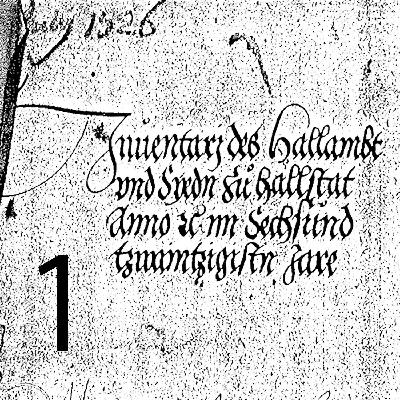 1526
Inuentarj des Hallambt
vnd Siedn zu Hallstat
Anno etc im Sechsund
tzwaintzigistn Jare
1